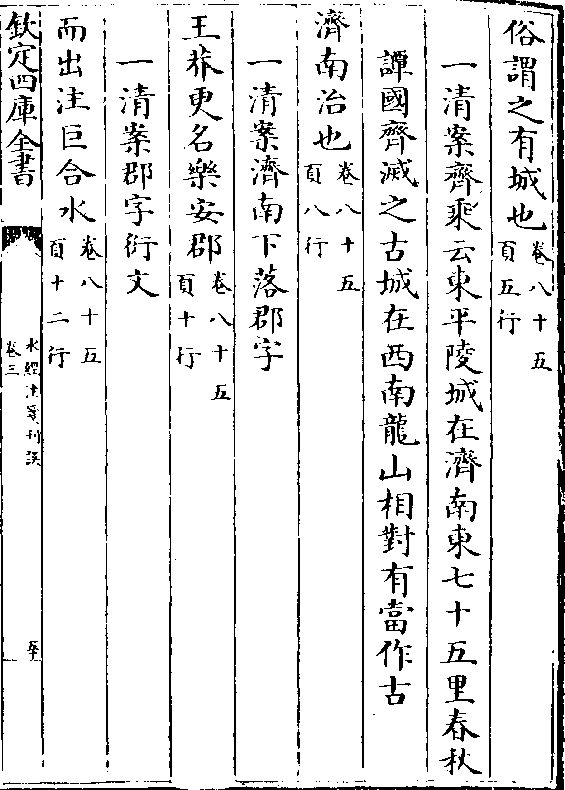 俗謂之有城也卷八十五頁五行
一清案齊乘云東平陵城在濟南東七十五里春秋
譚國齊滅之古城在西南龍山相對有當作古
濟南治也卷八十五頁八行
一清案濟南下落郡字
王莽更名樂安郡卷八十五頁十行
一清案郡字衍文
而出注巨合水卷八十五頁十二行
欽定四庫全書
水經注箋刊誤
卷三